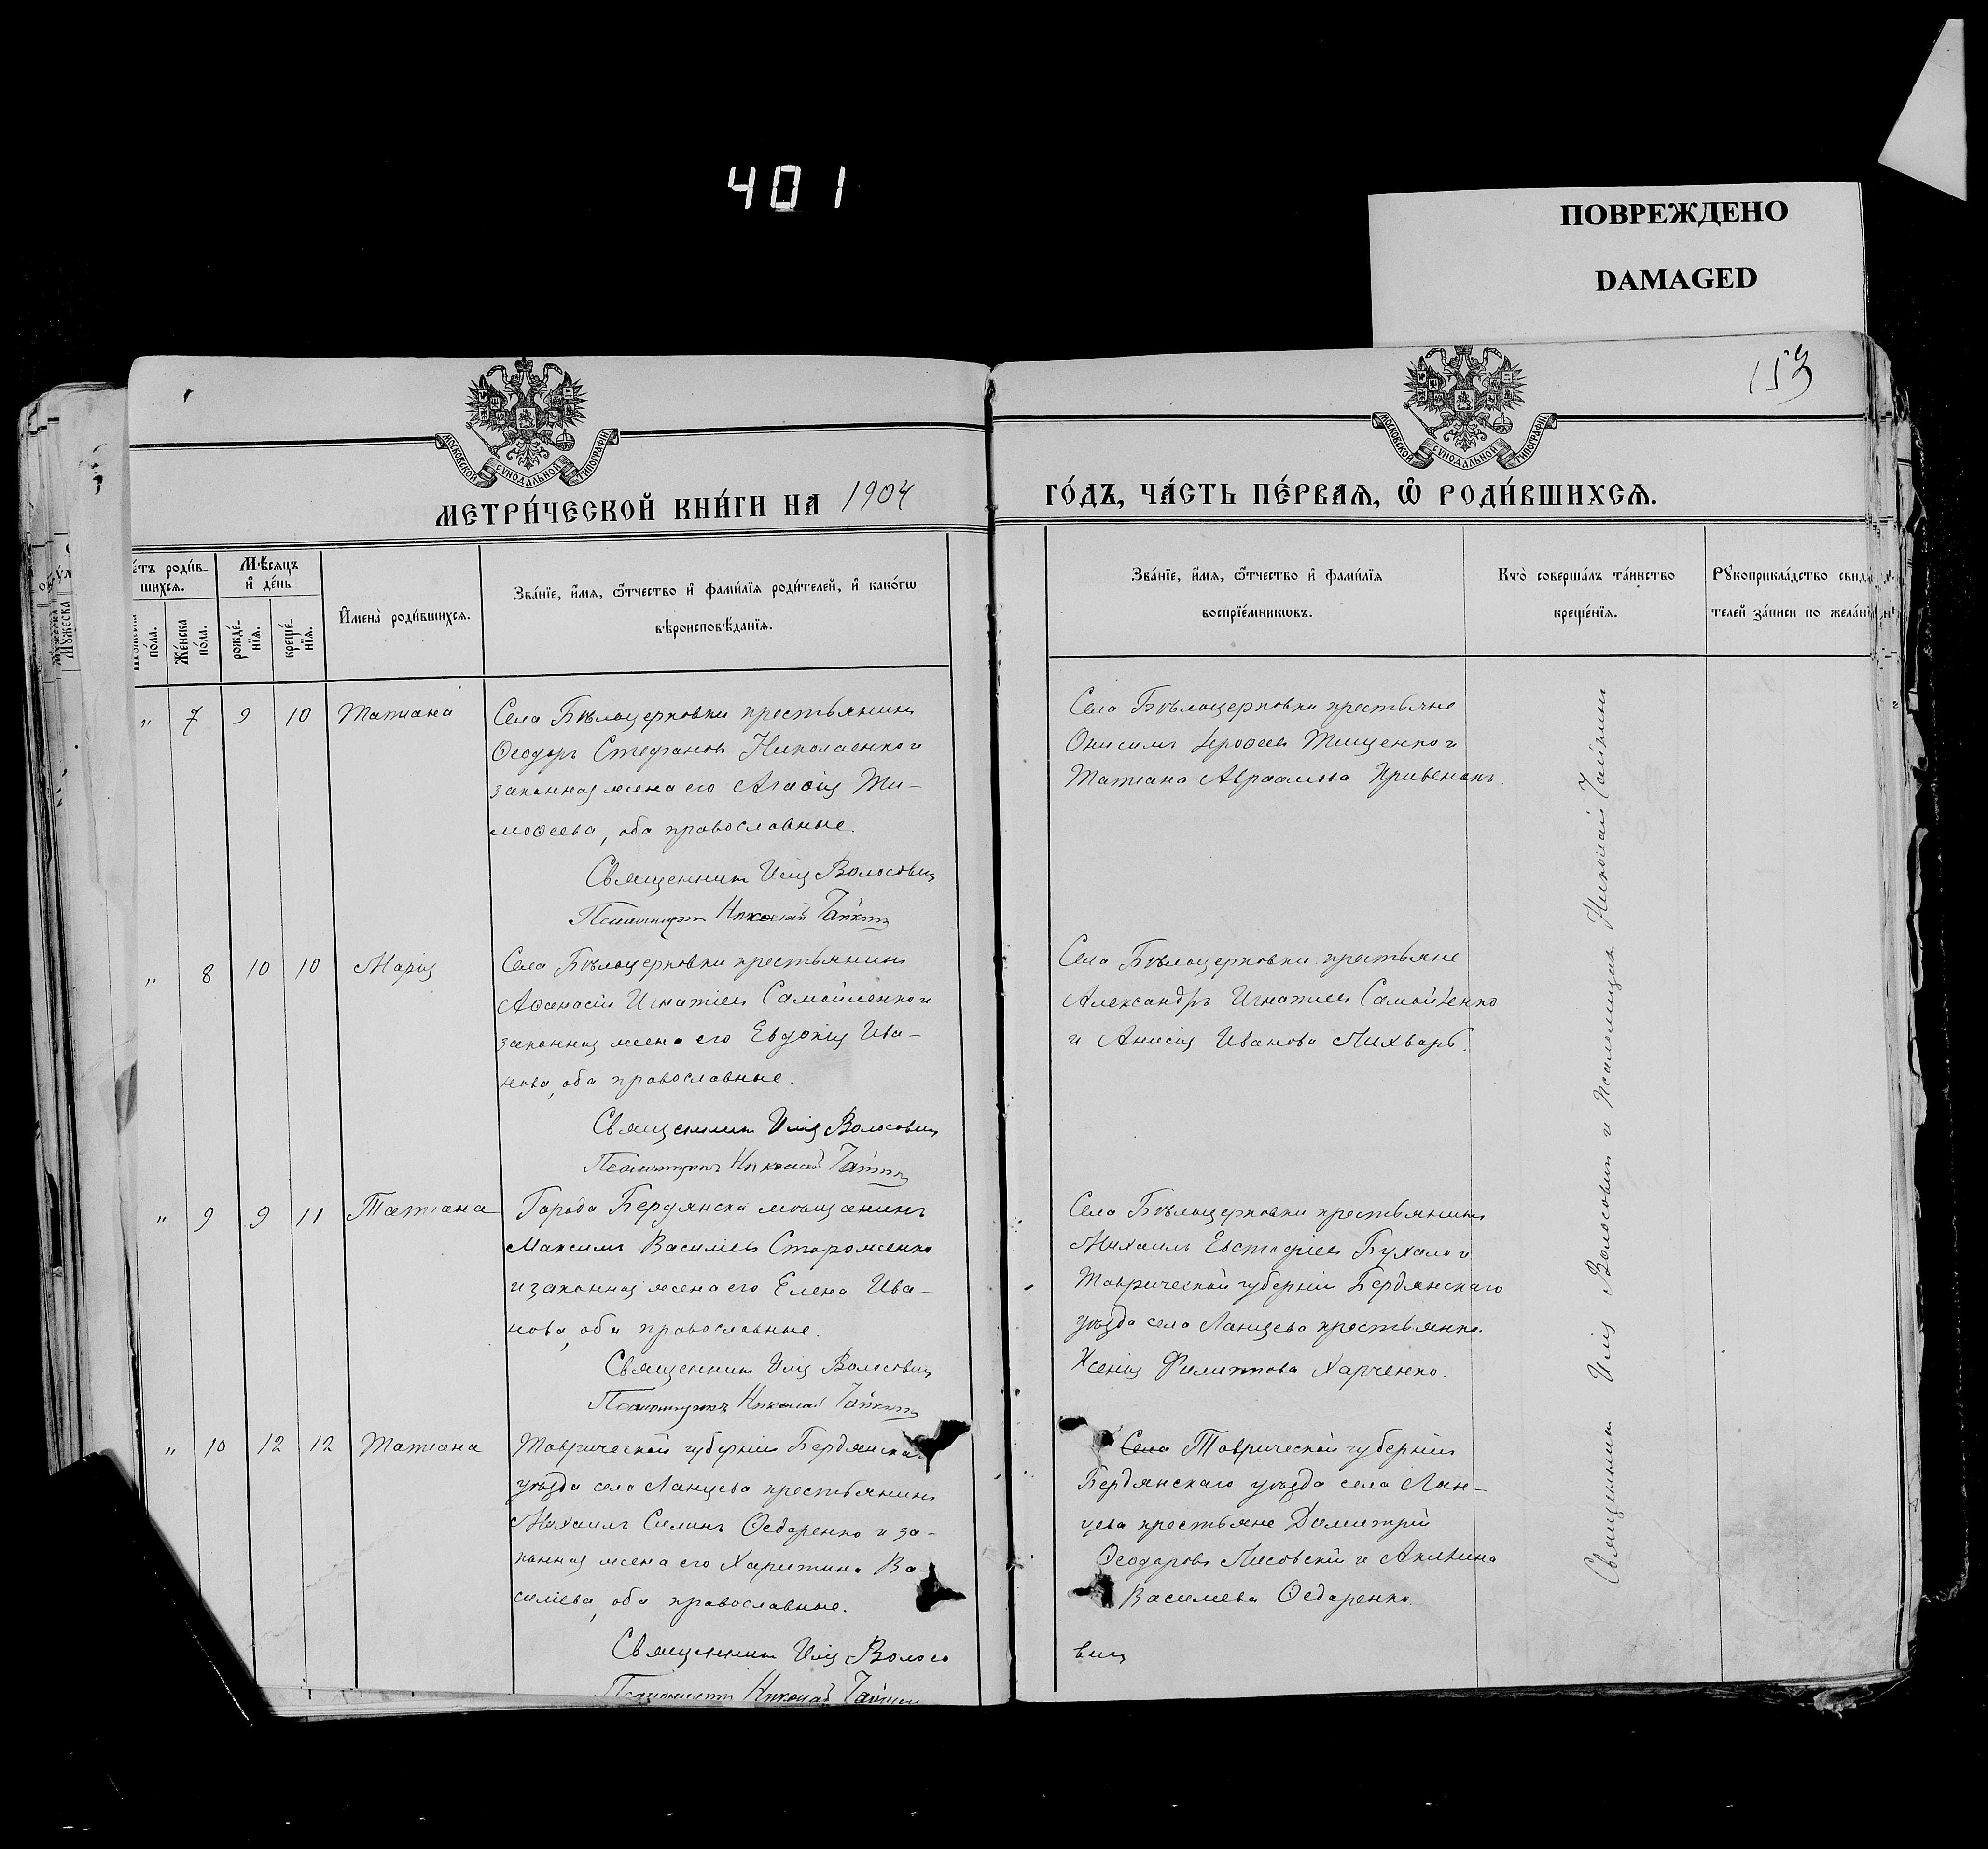 401
ПОВРЕЖДЕНО
DAMAGED
153
МОСКОВСКОЙ СУНОДАЛЬНОЙ ТИПОГРАФІИ
МОСКОВСКОЙ СУНОДАЛЬНОЙ ТИПОГРАФІИ
МЕТРИ́ЧЕСКОЙ КНИ́ГИ НА 1904
ГО́ДЪ, ЧА́СТЬ ПЕ́РВАѦ, Ѿ РОДИ́ВШИХСѦ.
е́тъ роди́в-
шихся.
Мѣ́сяцъ
и҆ де́нь
по́ла.
Же́нска
по́ла.
рожде́-
нїя.
креще́-
нїя.
И҆мена̀ роди́вшихся.
Зва́нїе, и҆́мя, ѻ҆́тчество и҆ фами́лїя роди́телей, и҆ како́гѡ
вѣроисповѣ́данїя.
Зва́нїе, и҆́мя, ѻ҆́тчество и҆ фами́лїя
воспрїе́мникѡвъ.
Кто̀ соверша́лъ та́инство
креще́нїя.
Рꙋкоприкла́дство свид
телей за́писи по жела́нї
" 7 9 10 Татіана
Села Бѣлоцерковки крестьянинъ
Ѳеодоръ Стефановъ Николаенко и
законная жена его Агаѳія Ти-
моѳеева, оба православные.
Священникъ Илія Волосовичъ
Псаломщикъ Николай
Села Бѣлоцерковки крестьяне
Онисимъ Іероѳеевъ Тищенко и
Татіана Авраамова
" 8 10 10 Марія
Села Бѣлоцерковки крестьянинъ
Аѳанасій Игнатіевъ Самойленко и
законная жена его Евдокія Ива-
нова, оба православные.
Священникъ Илія Волосовичъ
Псаломщикъ Николай
Села Бѣлоцерковки крестьяне
Александръ Игнатіевъ Самойленко
и Анисія Иванова Лихварь.
" 9 9 11 Татіана
Города Бердянска мѣщанинъ
Максимъ Василіевъ Стороженко
и законная жена его Елена Ива-
нова, оба православные.
Священникъ Илія Волосовичъ
Псаломщикъ Николай
Села Бѣлоцерковки крестьянинъ
Михаилъ Евстафіевъ Бухало и
Таврической губерніи Бердянскаго
уѣзда села Ланцева крестьянка
Ксенія Филиппова Харченко.
" 10 12 12 Татіана
Таврической губерніи Бердянска
уѣзда села Ланцева крестьянинъ
Михаилъ Силинъ Ѳедоренко и за-
конная жена его Харитина Ва-
силіева, оба православные.
Священникъ Илія Волосо
Псаломщикъ Николай
Села Таврической губерніи
Бердянскаго уѣзда села Лан-
цева крестьяне Димитрій
Ѳеодоровъ Лисовскій и Акилина
Василіева Ѳедоренко.
вичъ
Священникъ Илія Волосовичъ и псаломщикъ Николай